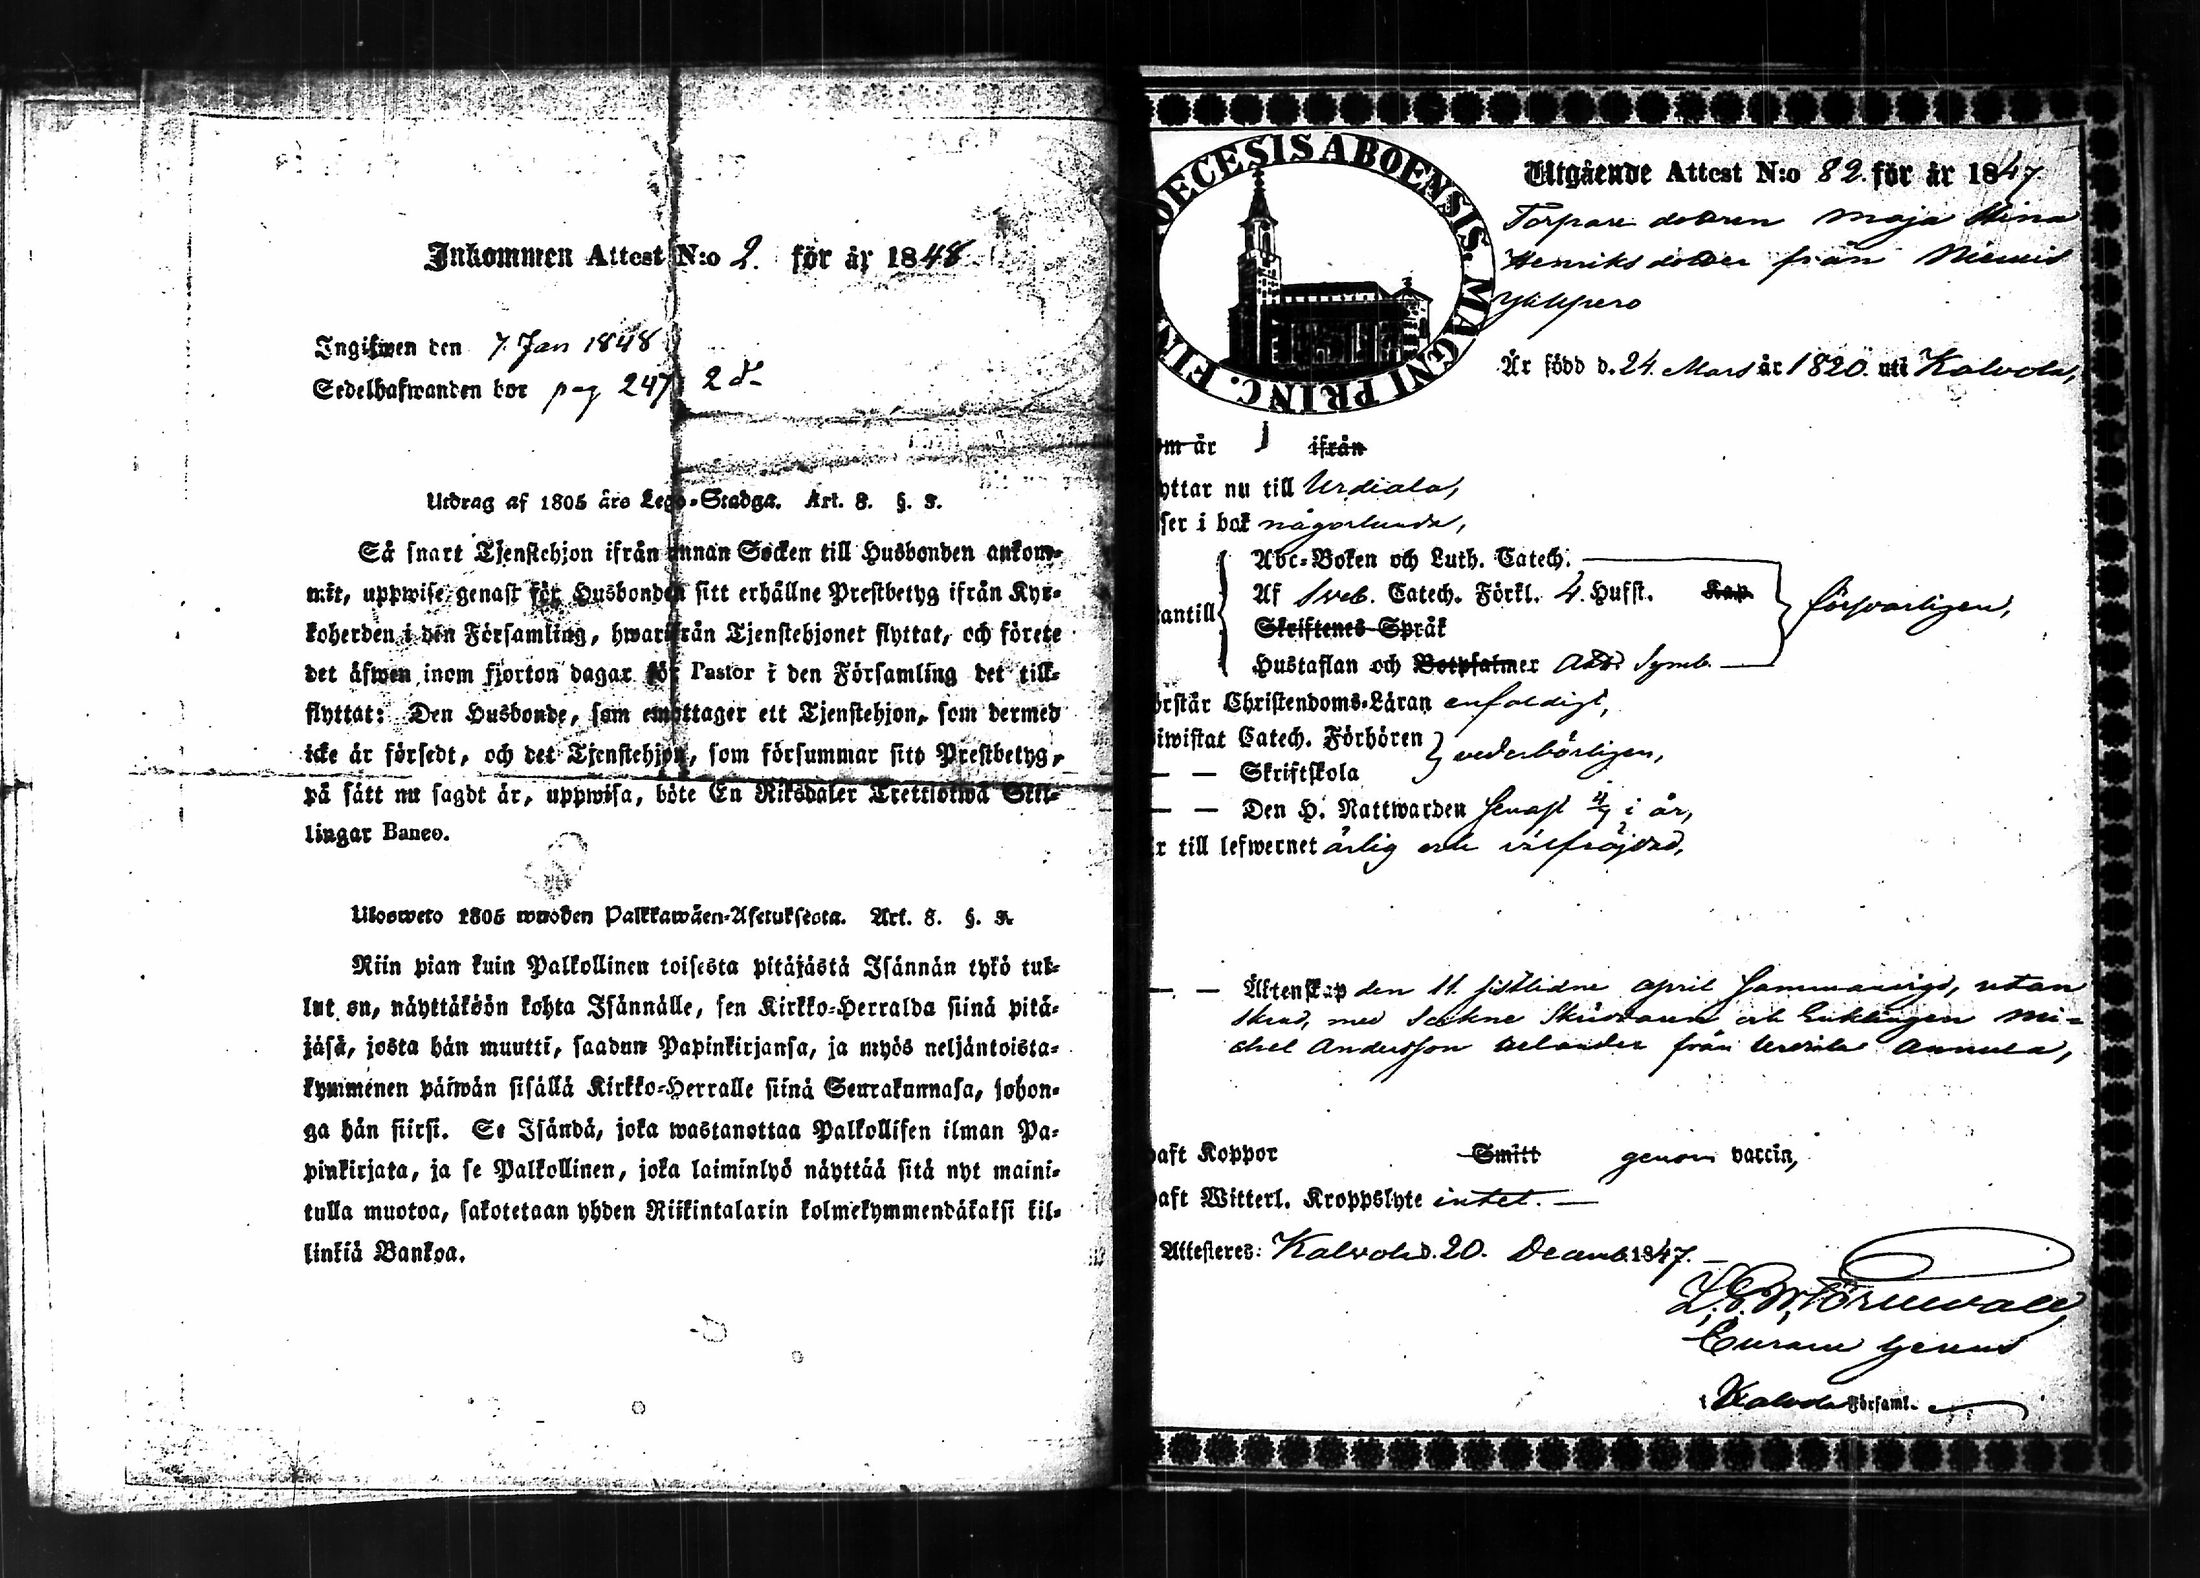 Inkommen Attest N:o 2. för år 1848
Ingifwen den 7. Jan 1848
Sedelhafwanden bor pag 247
Utdrag af 1805 års Lego-Stadga. Art. 8. §. 3.
Så snart Tjenstehjon ifrån annan Socken till Husbonden ankom-
mit, uppwise genast för Husbonden sitt erhållne Prestbetyg ifrån Kyr-
koherden i den Församling, hwarifrån Tjenstehjonet flyttat, och förete
det äfwen inom fjorton dagar för Pastor i den Församling det till-
flyttat: Den Husbonde, som emottager ett Tjenstehjon, som dermed
icke är försedt, och det Tjenstehjon, som försummar sitt Prestbetyg,
på sätt nu sagdt är, uppwisa, böte En Riksdaler Trettiotwå Skil-
lingar Banco.
Ulosweto 1805 wuoden Palkkawäen-Asetuksesta. Art. 8. §. 3.
Niin pian kuin Palkollinen toisesta pitäjästä Isännän tykö tul-
lut on, näyttäköön kohta Isännälle, sen Kirkko-Herralda siinä pitä-
jäsä, josta hän muutti, saadun Papinkirjansa, ja myös neljäntoista-
kymmenen päiwän sisällä Kirkko-Herralle siinä Seurakunnasa, johon-
ga hän siirsi. Se Isändä, joka wastanottaa Palkollisen ilman Pa-
pinkirjata, ja se Palkollinen, joka laiminlyö näyttää sitä nyt maini-
tulla muotoa, sakotetaan yhden Riikintalarin kolmekymmendäkaksi kil-
linkiä Bankoa.
DECESIS ABOENSIS. MAGNI PRINC. FIN
Utgående Attest N:o 82. för år 1847
Torpare dottren Maja Stina
Henriks dotter från Niemis
Ylikspero
Är född d. 24. Mars år 1820. uti Kalvola,
om år ifrån
yttar nu till Urdiala,
ser i bok någorlunda,
antill
Abc-Boken och Luth. Catech.
Af Sveb. Catech. Förkl. 4. Hufst. Kap
Skriftenes Språk
Hustaflan och Botpsalmer Symb.
försvarligen,
örstår Christendoms-Läran enfaldigt,
iwistat Catech. Förhören
vederbörligen,
— — Skriftskola
— — Den H. Nattwarden senast i år,
r till lefwernet ärlig och välfrejdad,
— — Äktenskap den 11. sistlidne April sammanvigd, utan
skrud, med Sockne Skräddaren och Enklingen Mi-
chel Andersson från Urdiala Annula,
haft Koppor Smitt genom vaccin,
haft Witterl. Kroppslyte intet. —
Attesteres: Kalvola d. 20. Decemb. 1847. —
L. E. W. Törnevall
i Kalvola Församl.